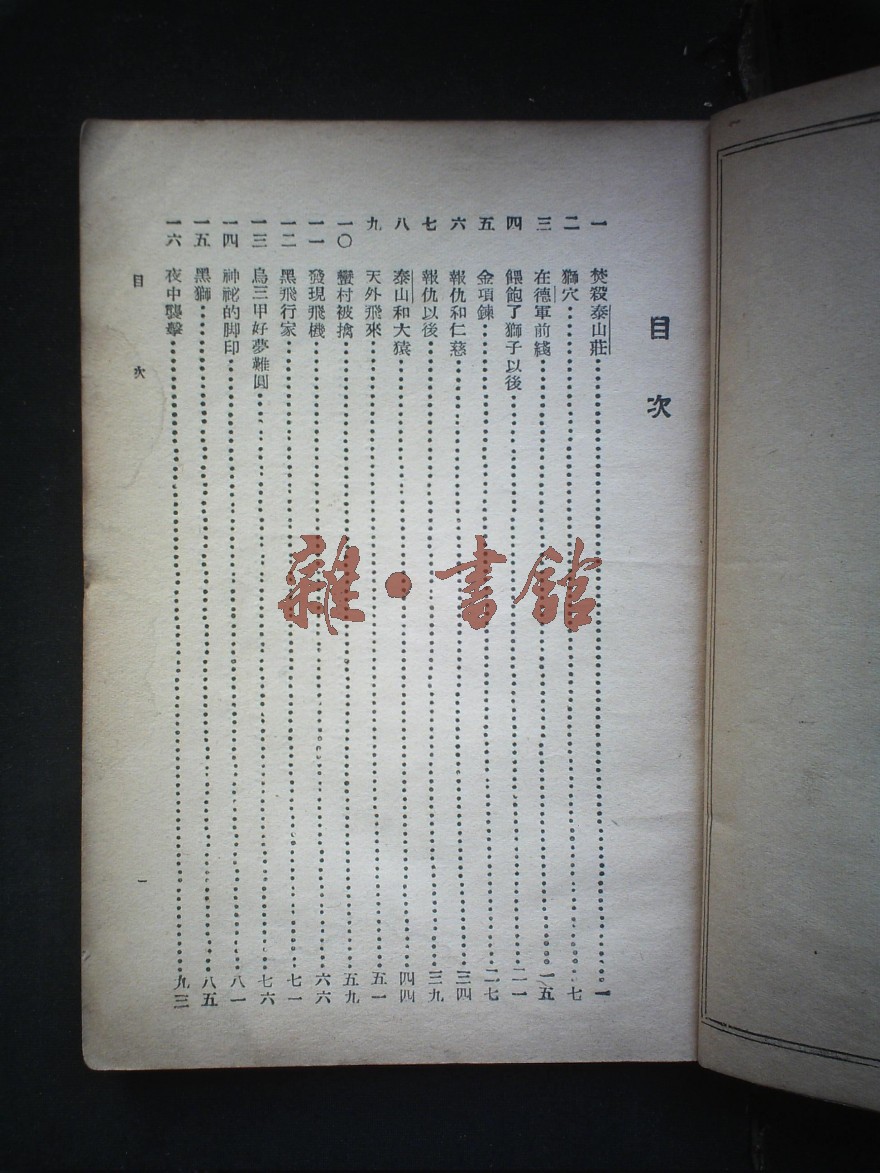 目次
一 焚殺泰山莊 一
二 獅穴 七
三 在德軍前綫 一五
四 餵飽了獅子以後 二一
五 金項鍊 二七
六 報仇和仁慈 三四
七 報仇以後 三九
八 泰山和大猿 四四
九 天外飛來 五一
一〇 蠻村被擒 五九
一一 發現飛機 六六
一二 黑飛行家 七一
一三 烏三甲好夢難圓 七六
一四 神祕的脚印 八一
一五 黑獅 八五
一六 夜中襲擊 九三
目次 一
雜·書館